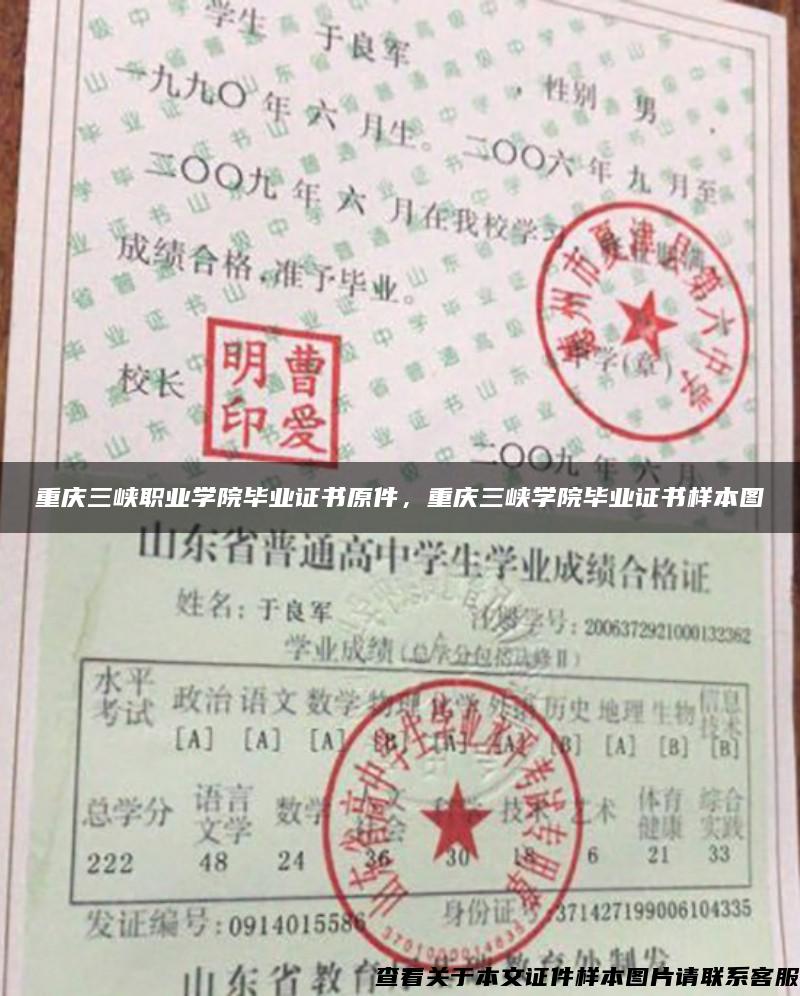 学生 于良军 , 性别 男
一九九〇 年 六 月生。 二〇〇六 年 九 月至
二〇〇九 年 六 月在我校学习,
成绩合格,准予毕业。
校长
曹爱明印
德州市夏津县第六中学
中学(章)
二〇〇九 年 六 月
重庆三峡职业学院毕业证书原件，重庆三峡学院毕业证书样本图
山东省普通高中学生学业成绩合格证
姓名: 于良军 学号: 2006372921000132362
学业成绩(总学分包括选修Ⅱ)
水平考试 政治 语文 数学 物理 化学 外语 历史 地理 生物 信息技术
[A] [A] [A] [B] [A] [B] [A] [B] [B]
总学分 语言文学 数学 技术 艺术 体育健康 综合实践
222 48 24 36 30 18 6 21 33
山东省普通高中学生学业水平考试专用章
发证编号: 0914015586 身份证号: 371427199006104335
山东省教育厅 制发
查看关于本文证件样本图片请联系客服